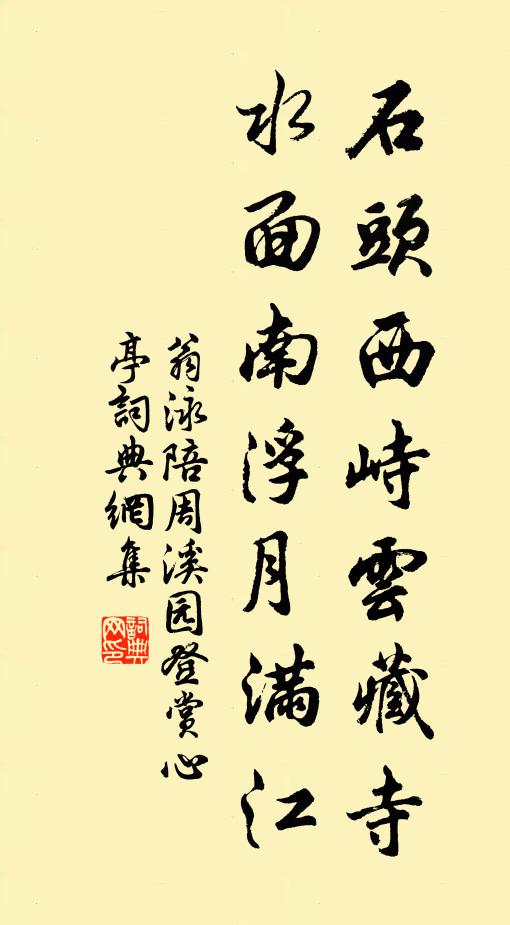 石頭西峙雲藏寺
水面南浮月滿江
翁泳陪周溪园登賞心
亭詞典網集
詞典
网印